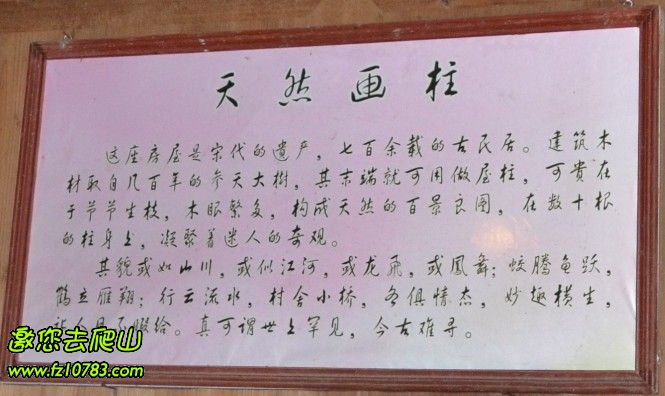 天然画柱
这座房屋是宋代的遗产，七百余载的古民居。建筑木
材取自几百年的参天大樹，其末端就可用做屋柱，可貴在
于节节生枝，木眼繁多，构成天然的百景良图，在数十根
的柱身上，凝聚着迷人的奇观。
其貌或如山川，或似江河，或龙飛，或鳳舞；蛟腾鱼跃，
鹤立雁翔；行云流水，村舍小桥，各俱情态，妙趣横生，
让人目不暇给。真可谓世上罕见，今古难寻。
邀您去爬山
www.fz10783.com